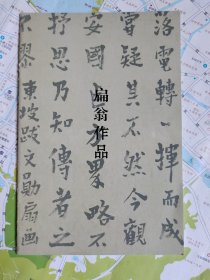 落電轉一揮而成
嘗疑其不然今觀
安國作方界略不
抒思乃知傳者之
不謬東坡跋文勛扇画
扁翁作品